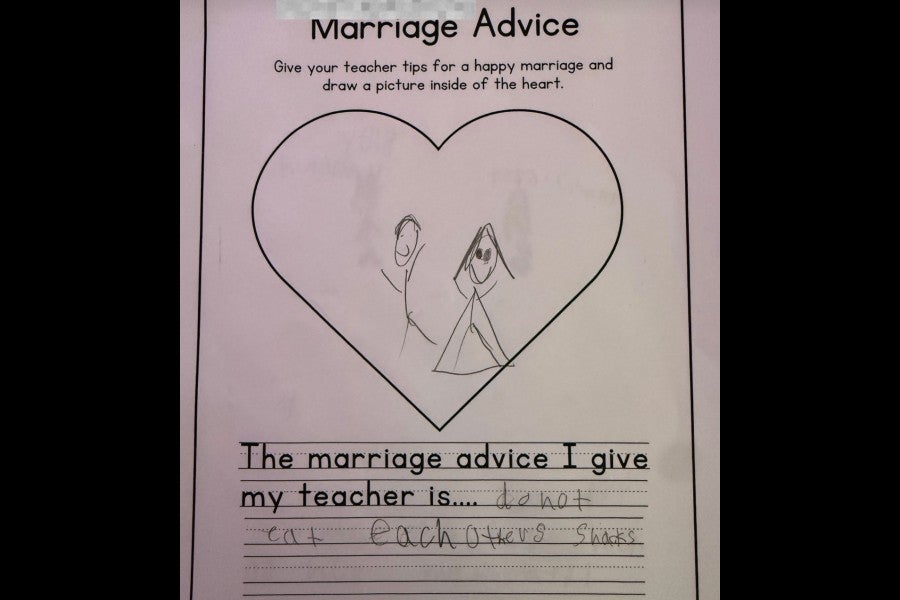 Marriage Advice
Give your teacher tips for a happy marriage and
draw a picture inside of the heart.
The marriage advice I give
my teacher is.... do not
eat Each others Snacks